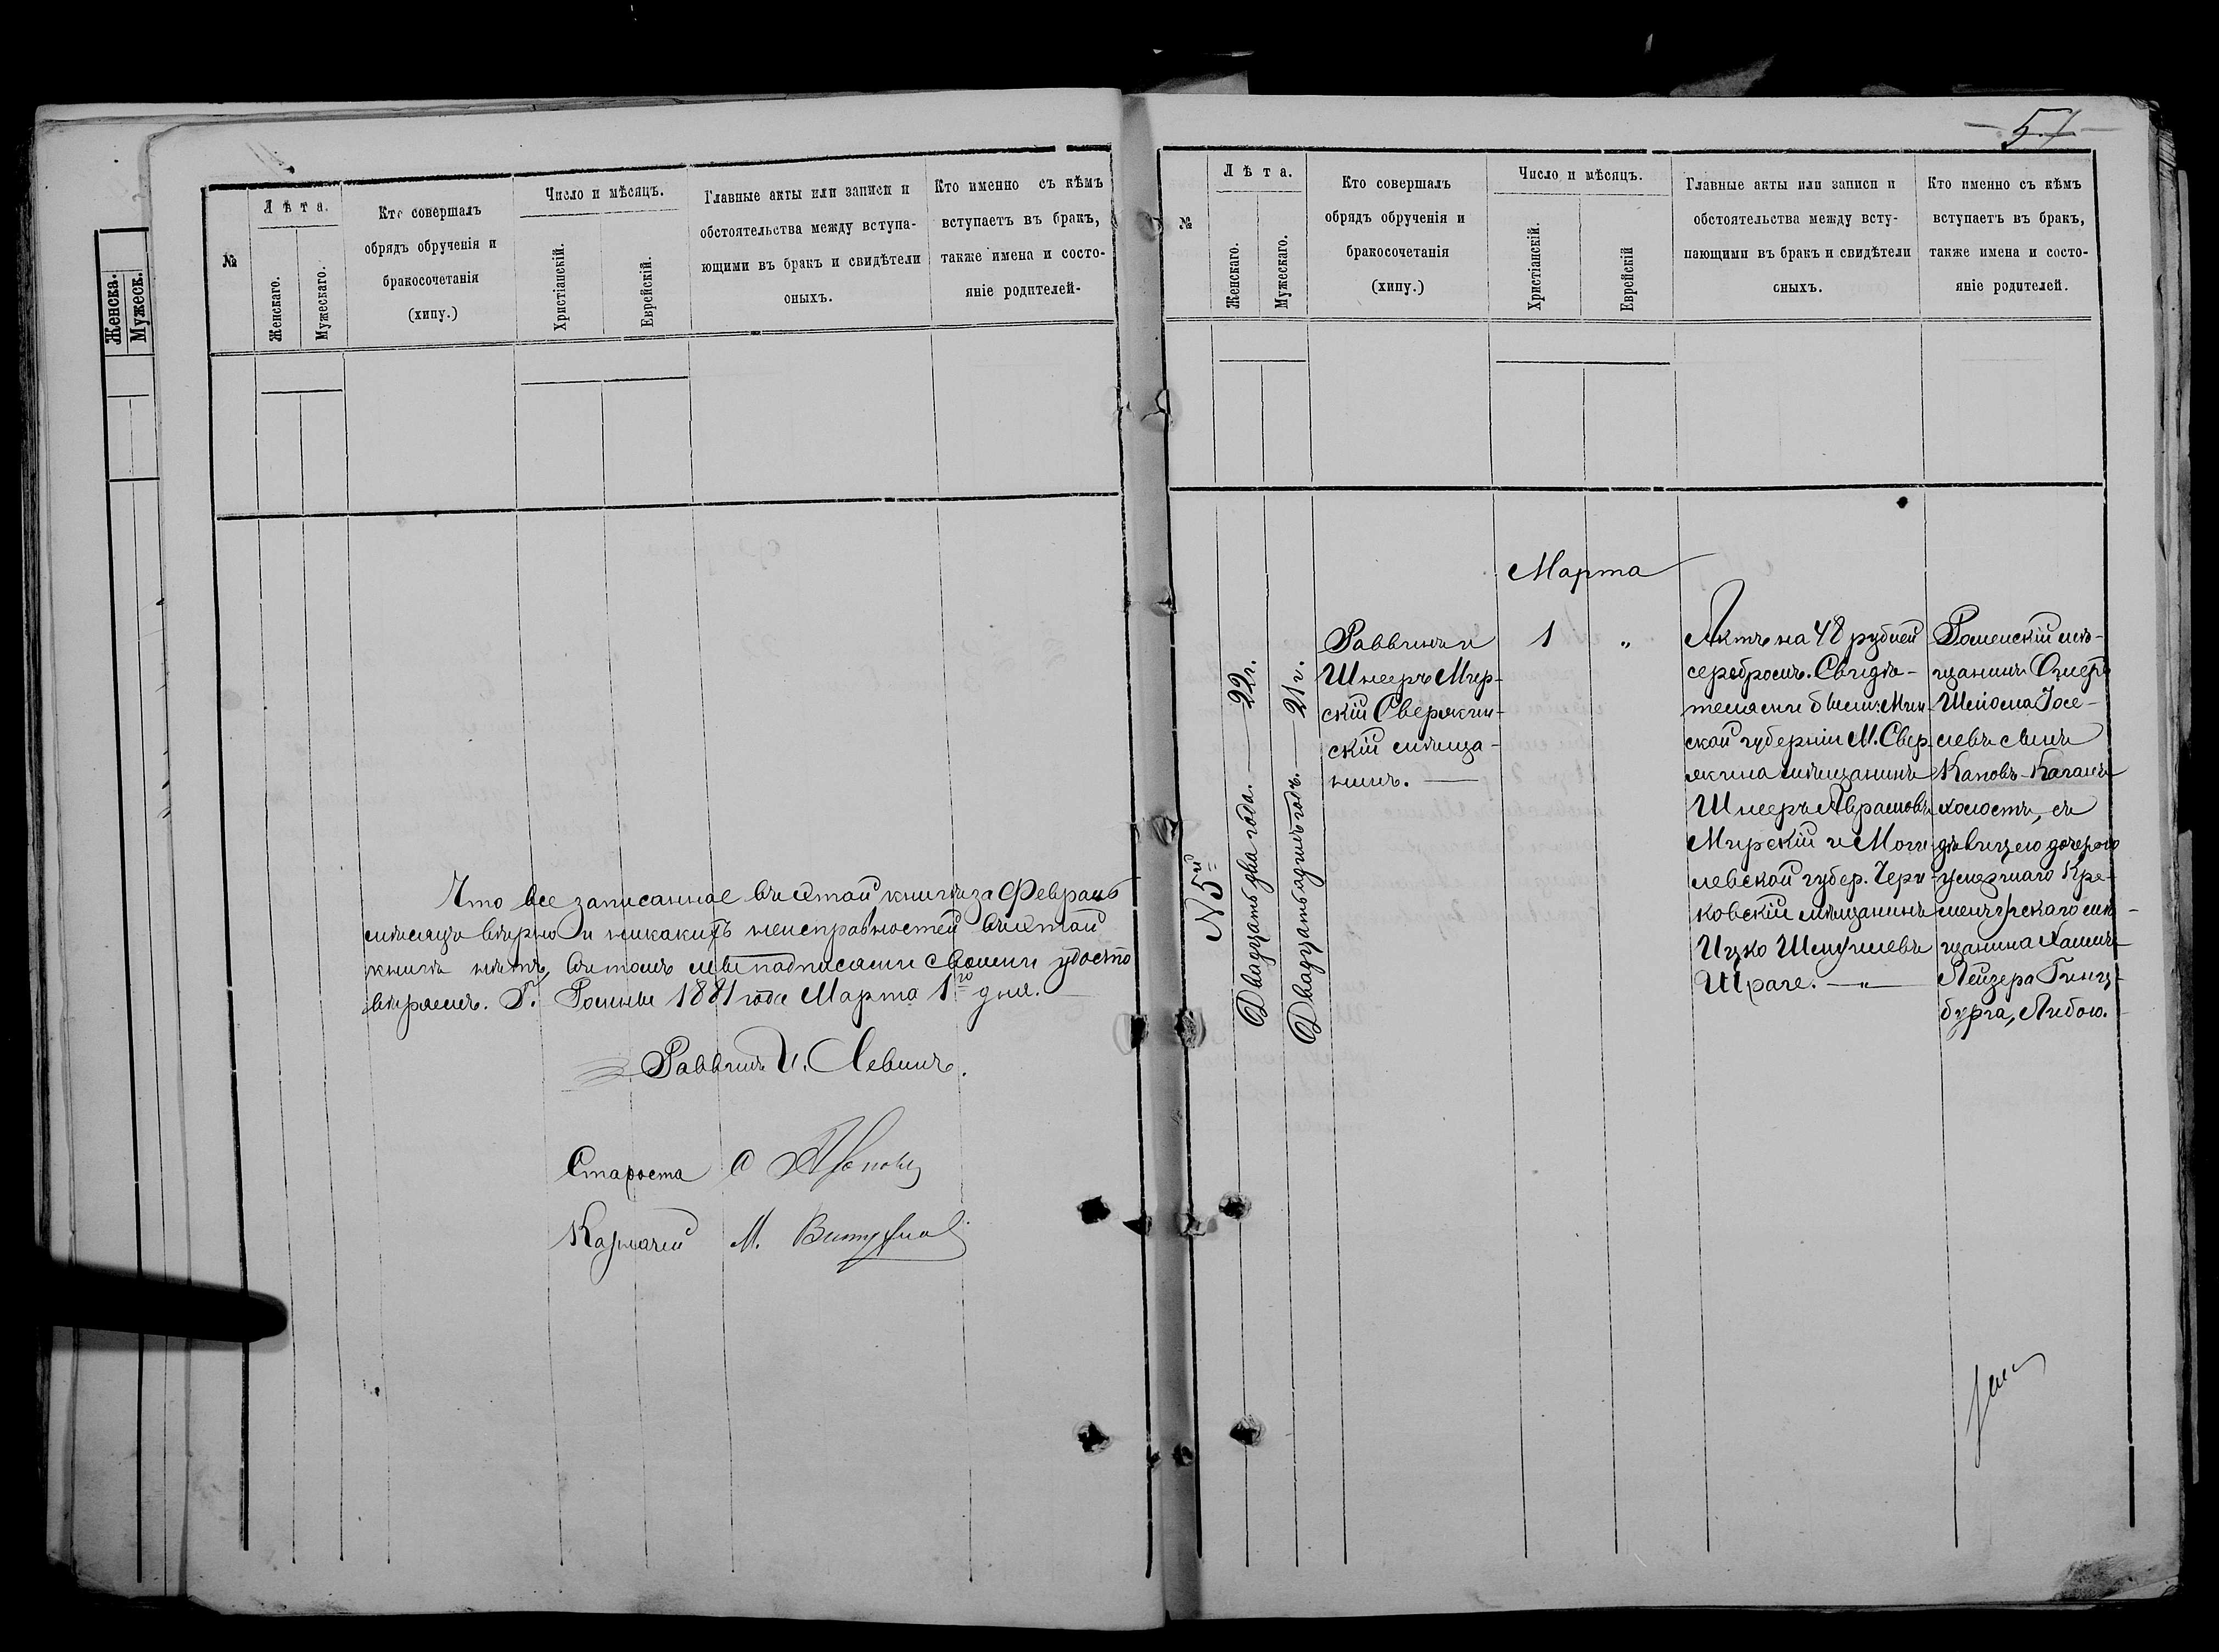 Женска.
Мужеск.
№
Лѣта.
Женскаго.
Мужескаго.
Кто совершалъ
обрядъ обрученія и
бракосочетанія
(хипу.)
Число и мѣсяцъ.
Христіанскій.
Еврейскій.
Главные акты или записи и
обстоятельства между вступа-
ющими въ бракъ и свидѣтели
оныхъ.
Кто именно съ кѣмъ
вступаетъ въ бракъ,
также имена и состо-
яніе родителей-
Что все записанное въ этой книгѣ за Февраль
мѣсяцъ вѣрно и никакихъ неисправностей въ этой
книгѣ нѣтъ, въ томъ мы подписами своими удосто
вѣряемъ. Г. Ромны 1881 года Марта 1го дня.
Раввинъ И. Левинъ.
Староста
Казначей М.
51
№
Лѣта.
Женскаго.
Мужескаго.
Кто совершалъ
обрядъ обрученія и
бракосочетанія
(хипу.)
Число и мѣсяцъ.
Христіанскій.
Еврейскій
Главные акты или записи и
обстоятельства между всту-
пающими въ бракъ и свидѣтели
оныхъ.
Кто именно съ кѣмъ
вступаетъ въ бракъ,
также имена и состо-
яніе родителей.
Марта
№ 5й
Двадцать два года. — 22 г.
Двадцать одинъ годъ. — 21 г.
Раввинъ и
Шнееръ Мир-
скій Свержен-
скій мѣща-
нинъ. —
1 "
Актъ на 48 рублей
серебромъ. Свидѣ-
телями были: Мин-
ской губерніи М. Свер
мѣщанинъ
Шнееръ Абрамовъ
Мирскій и Моги-
левской губер. Чери-
ковскій мѣщанинъ
Ицко
Шраге. — " —
Роменскій мѣ-
щанинъ
Шлиома Іосе-
левъ сынъ
Каповъ-Каганъ
холостъ, съ
дѣвицею дочерью
умершаго Кре-
менчугскаго мѣ-
щанина Хаимъ-
Лейзера Гинц-
бурга, Либою.